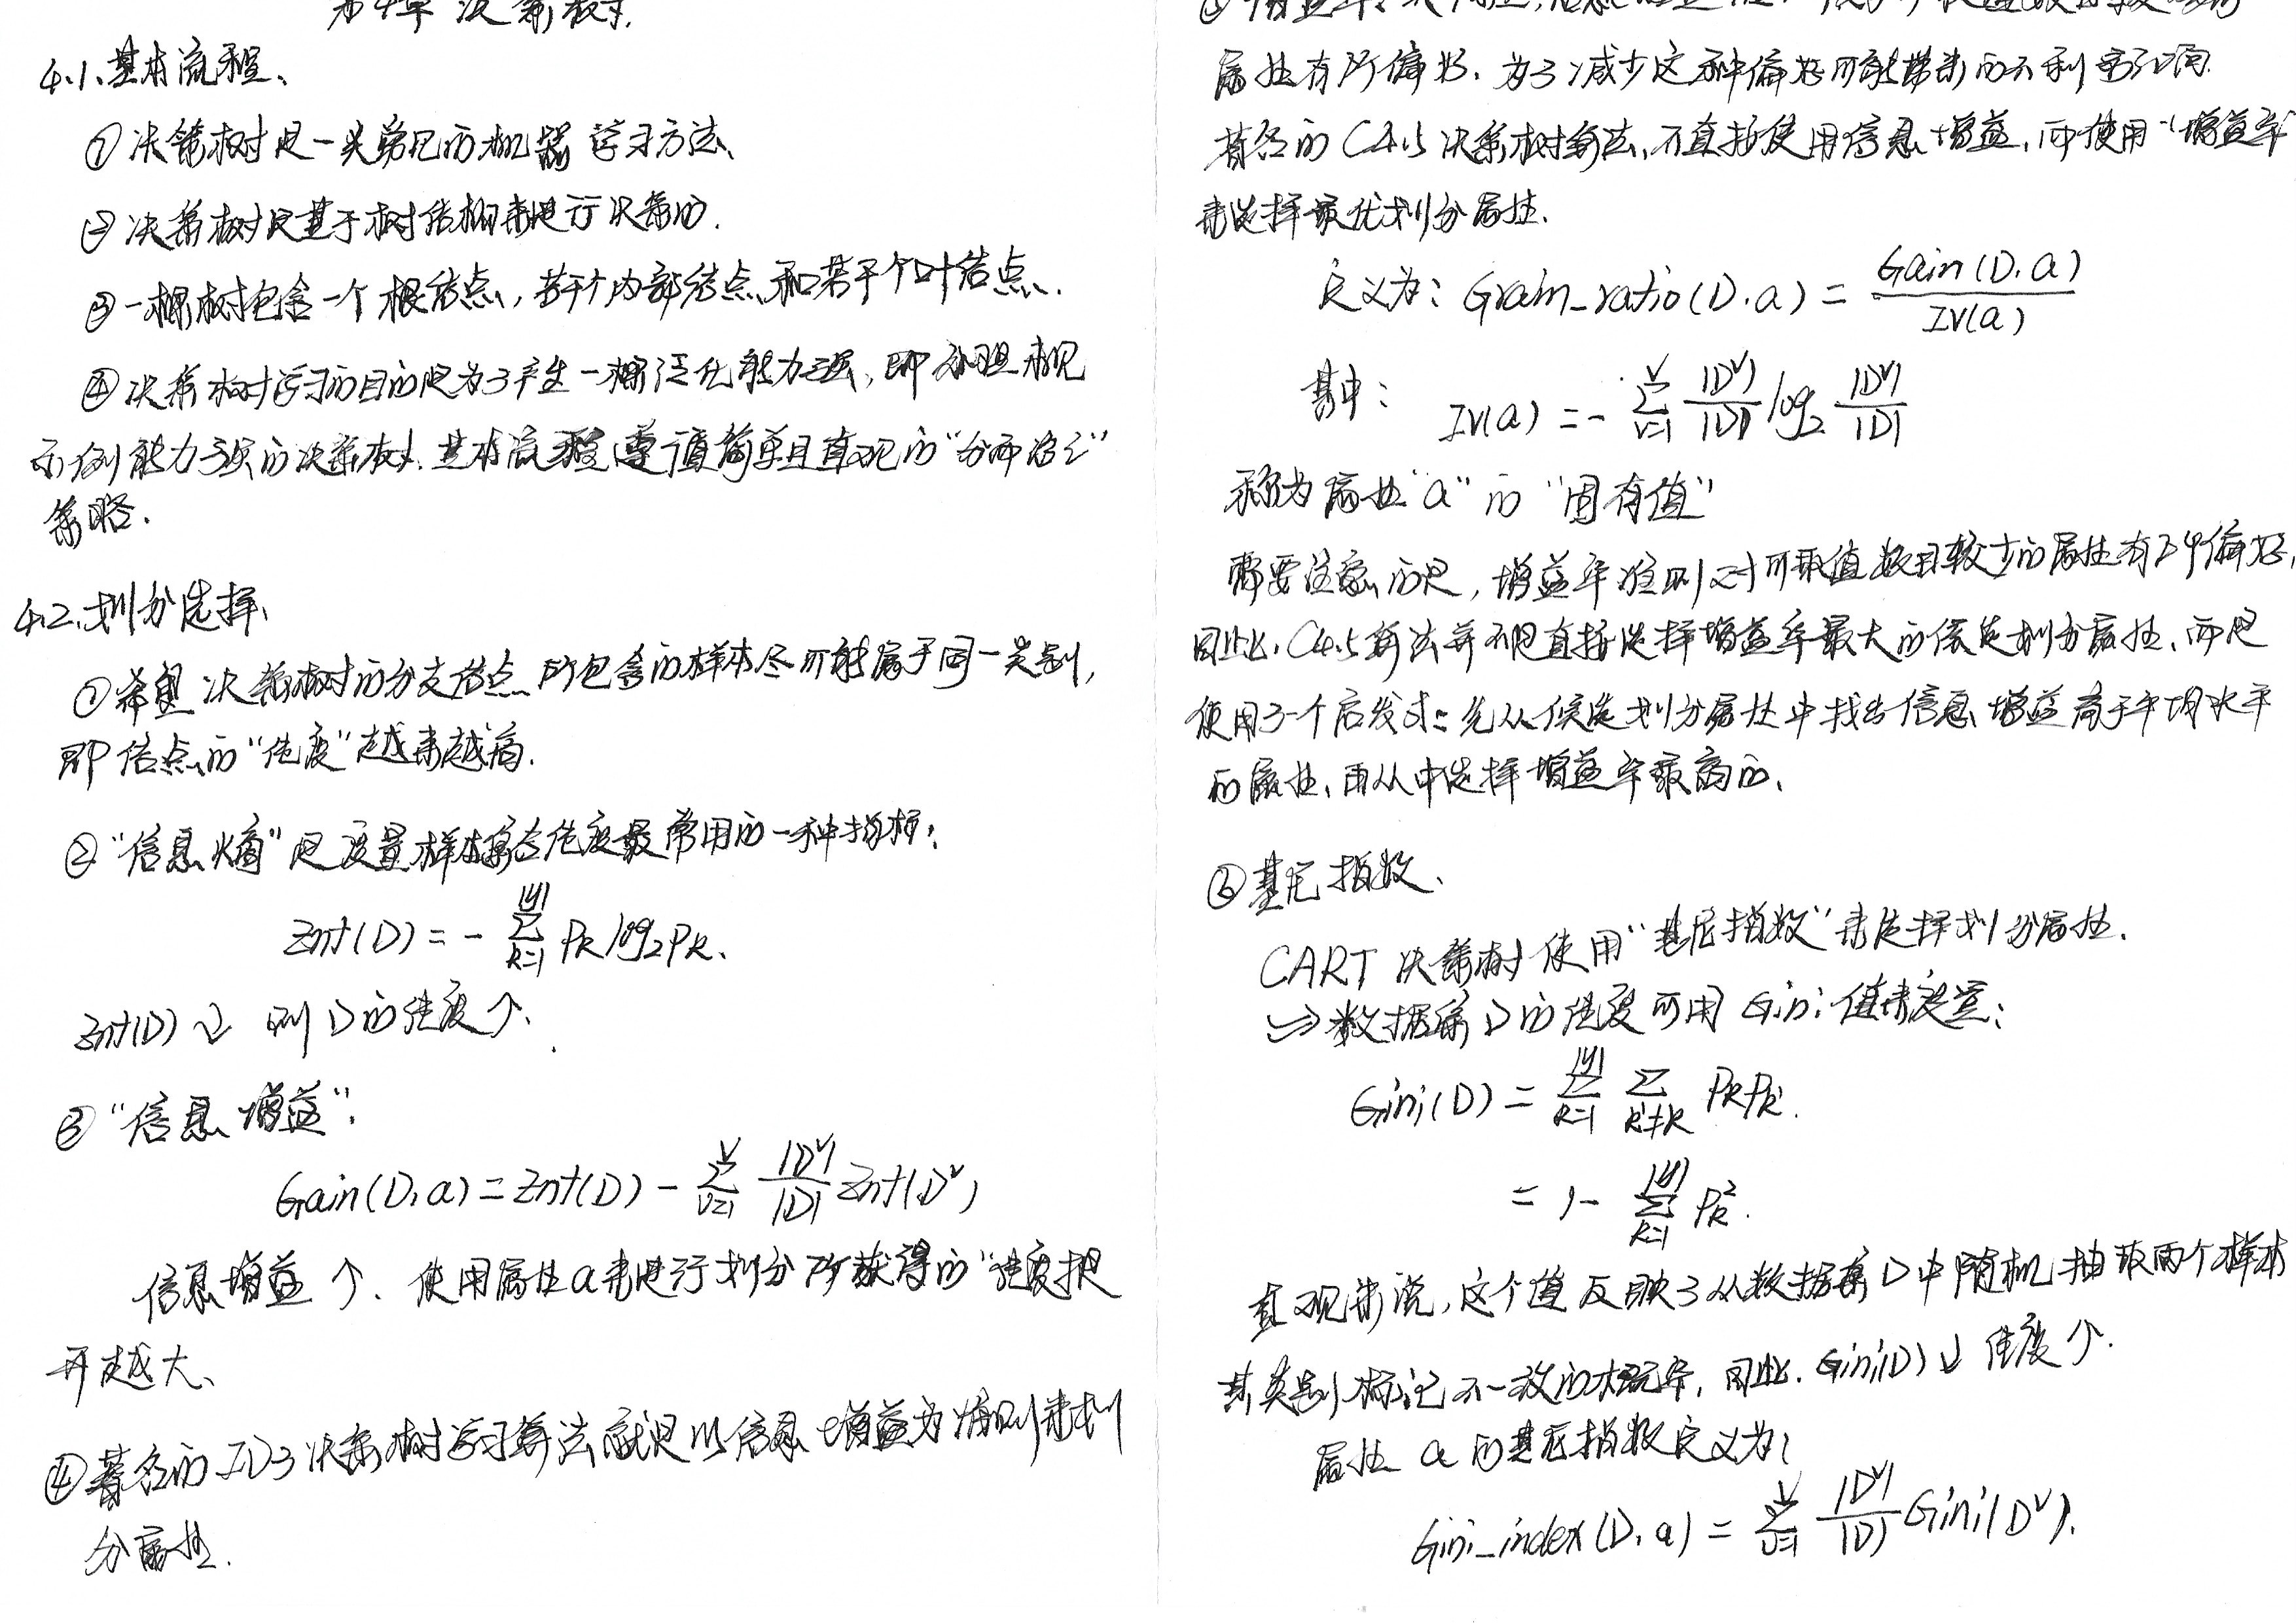 第4章 决策树
4.1、基本流程、
① 决策树是一类常见的机器学习方法、
② 决策树是基于树结构来进行决策的.
③ 一棵树包含一个根结点，若干个内部结点和若干个叶结点、.
④ 决策树学习的目的是为了产生一棵泛化能力强，即处理未见
示例能力强的决策树. 基本流程遵循简单且直观的“分而治之”
策略.
4.2、划分选择、
① 希望决策树的分支结点所包含的样本尽可能属于同一类别，
即结点的“纯度”越来越高.
② “信息熵”是度量样本集合纯度最常用的一种指标：
Ent(D) = - ∑_{k=1}^{|y|} p_k log_2 p_k.
Ent(D) ↓ 则 D 的纯度 ↑.
③ “信息增益”.
Gain(D, a) = Ent(D) - ∑_{v=1}^{V} |D^v|/|D| Ent(D^v)
信息增益 ↑、使用属性 a 来进行划分所获得的“纯度提
升越大、
④ 著名的 ID3 决策树学习算法就是以信息增益为准则来划
分属性.
属性有所偏好. 为了减少这种偏好可能带来的不利影响
著名的 C4.5 决策树算法、不直接使用信息增益，而使用“增益率
来选择最优划分属性.
定义为：Grain_ratio(D, a) = Gain(D, a)/IV(a)
其中： IV(a) = - ∑_{v=1}^{V} |D^v|/|D| log_2 |D^v|/|D|
称为属性“a”的“固有值”
需要注意的是，增益率准则对可取值数目较少的属性有所偏好，
因此，C4.5 算法并不是直接选择增益率最大的候选划分属性，而是
使用了一个启发式：先从候选划分属性中找出信息增益高于平均水平
的属性、再从中选择增益率最高的、
⑥ 基尼指数、
CART 决策树使用“基尼指数”来选择划分属性.
⇒ 数据集 D 的纯度可用 Gini 值来度量：
Gini(D) = ∑_{k=1}^{|y|} ∑_{k'≠k} p_k p_k'.
= 1 - ∑_{k=1}^{|y|} p_k^2.
直观来说，这个值反映了从数据集 D 中随机抽取两个样本
其类别标记不一致的概率，因此. Gini(D) ↓ 纯度 ↑.
属性 a 的基尼指数定义为：
Gini_index(D, a) = ∑_{v=1}^{V} |D^v|/|D| Gini(D^v).